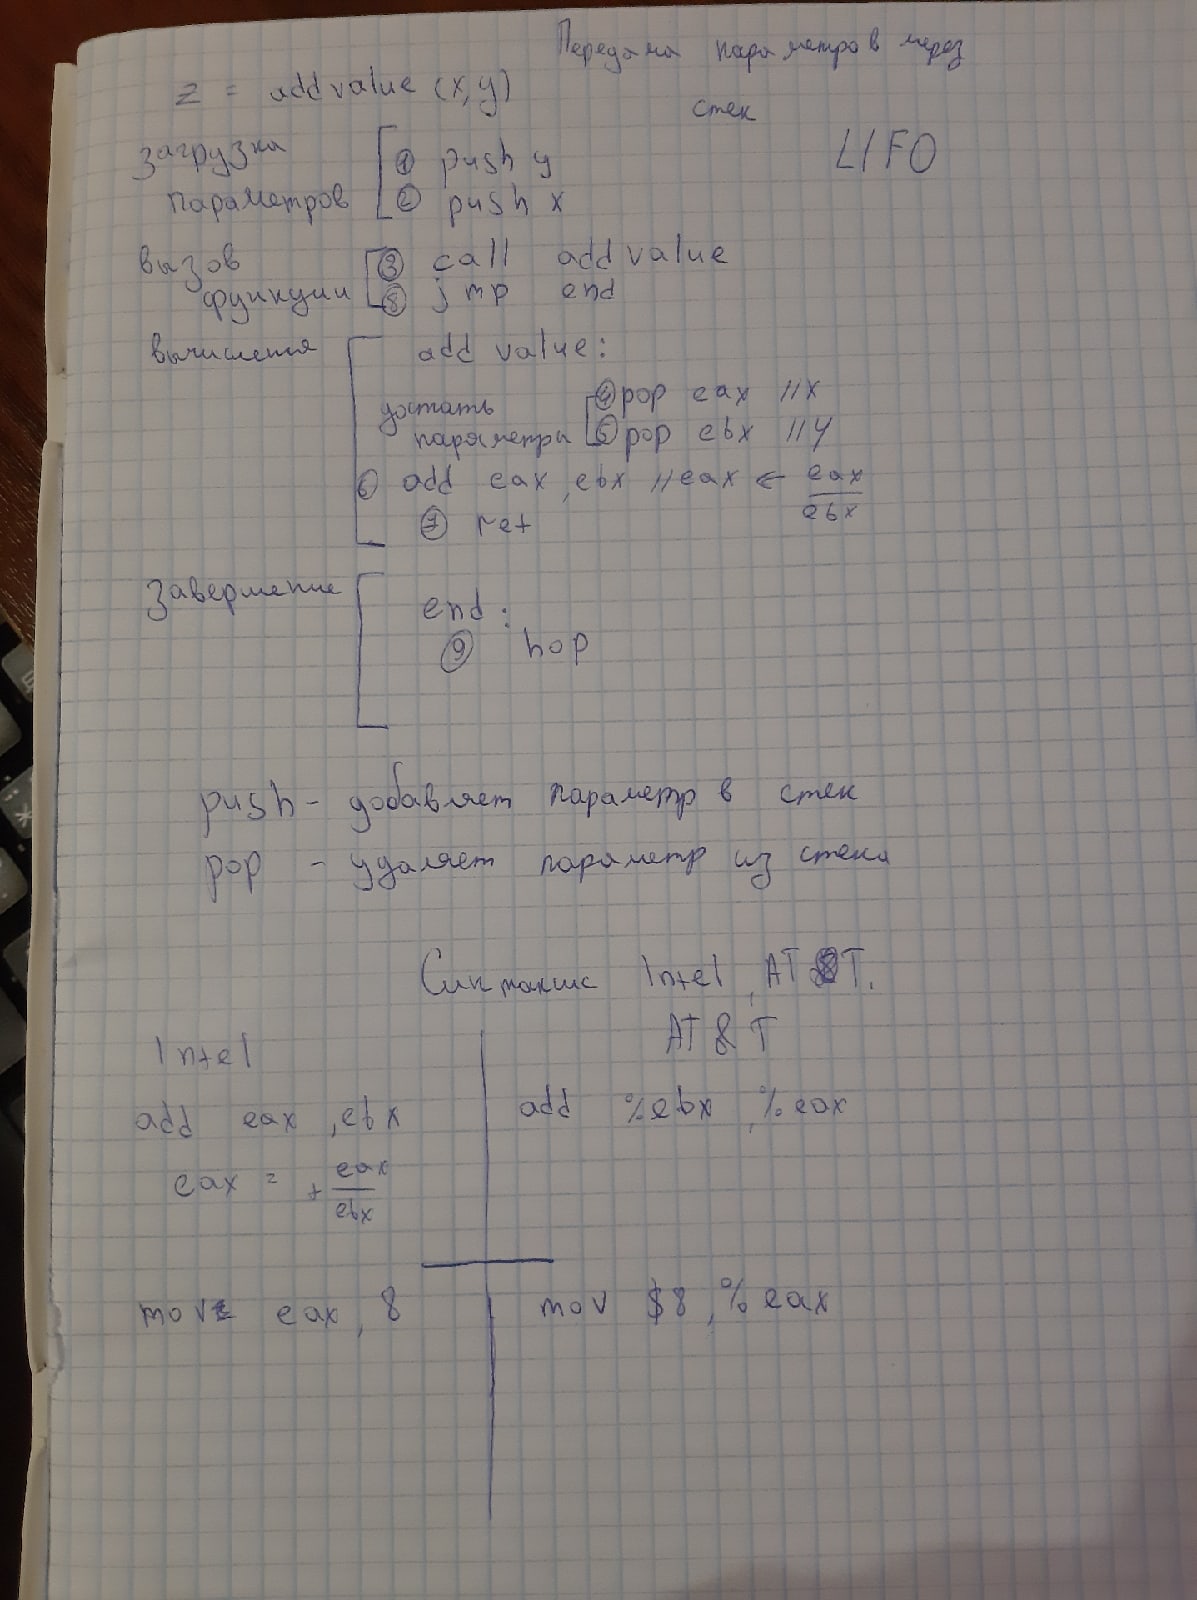 Передача параметров через
стек
z = addvalue (x,y)
LIFO
загрузка
параметров
① push y
② push x
вызов
функции
③ call addvalue
⑧ jmp end
вычисления
add value:
достать
параметры
④ pop eax //x
⑤ pop ebx //y
⑥ add eax, ebx //eax ← eax
ebx
⑦ ret
Завершение
end:
⑨ nop
push - добавляет параметр в стек
pop - удаляет параметр из стека
Синтаксис Intel, AT&T.
Intel
AT&T
add eax, ebx
add %ebx, %eax
eax = + eax
ebx
mov eax, 8
mov $8, %eax